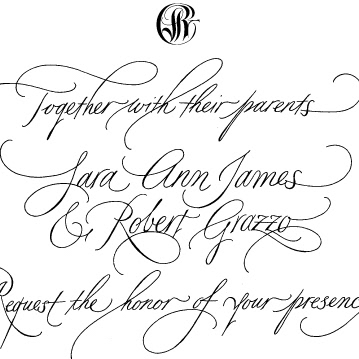 Together with their parents
Sara Ann James
& Robert Grazzo
Request the honor of your presenc